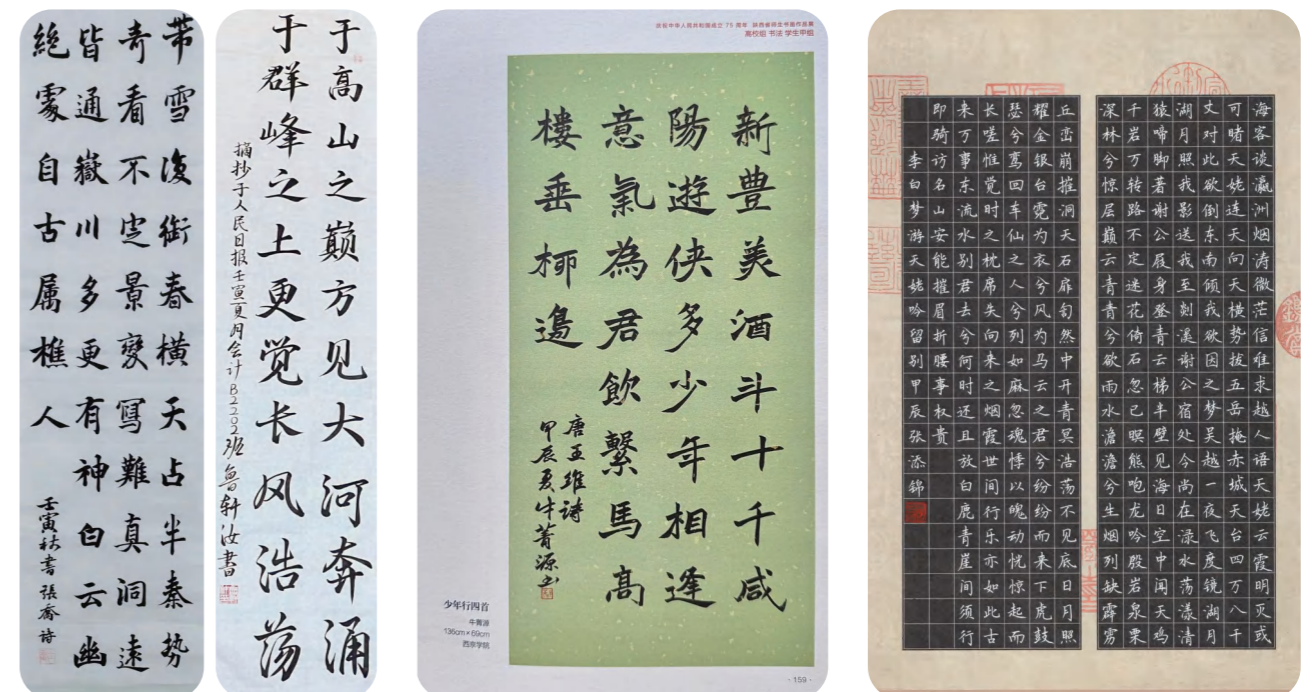 带雪復銜春横天占半秦势
奇看不定景變寫難真洞遠
皆通嶽川多更有神白云幽
絕處自古属樵人
壬寅秋書 張喬詩
于高山之巅方见大河奔涌
于群峰之上更觉长风浩荡
摘抄于人民日报壬寅夏月会计B2202班鲁轩汝書
庆祝中华人民共和国成立 75 周年 陕西省师生书画作品展
高校组 书法 学生甲组
新豊美酒斗十千咸
陽遊侠多少年相逢
意氣為君飲繫馬高
樓垂栁邊
唐王維詩
甲辰夏牛菁源书
少年行四首
牛菁源
136cm×69cm
西京学院
·159·
海客谈瀛洲烟涛微茫信难求越人语天姥云霞明灭或
可睹天姥连天向天横势拔五岳掩赤城天台四万八千
丈对此欲倒东南倾我欲因之梦吴越一夜飞度镜湖月
湖月照我影送我至剡溪谢公宿处今尚在渌水荡漾清
猿啼脚著谢公屐身登青云梯半壁见海日空中闻天鸡
千岩万转路不定迷花倚石忽已暝熊咆龙吟殷岩泉栗
深林兮惊层巅云青青兮欲雨水澹澹兮生烟列缺霹雳
丘峦崩摧洞天石扉訇然中开青冥浩荡不见底日月照
耀金银台霓为衣兮风为马云之君兮纷纷而来下虎鼓
瑟兮鸾回车仙之人兮列如麻忽魂悸以魄动恍惊起而
长嗟惟觉时之枕席失向来之烟霞世间行乐亦如此古
来万事东流水别君去兮何时还且放白鹿青崖间须行
即骑访名山安能摧眉折腰事权贵
李白梦游天姥吟留别甲辰张添锦